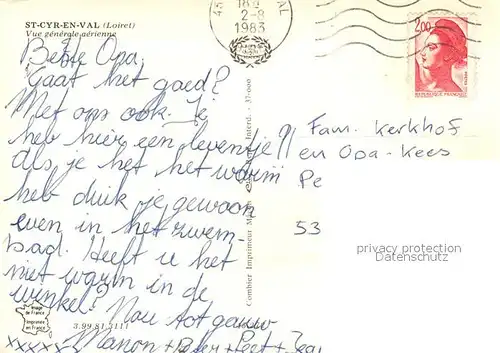 ST-CYR-EN-VAL (Loiret)
Vue générale aérienne
18H
2-8
1983
2,00
REPUBLIQUE FRANÇAISE
Beste Opa,
Gaat het goed?
Met ons ook. Je
heb hier een leventje!!
Als je het het warm
heb duik je gewoon
even in het zwem-
bad. Heeft u het
niet warm in de
winkel? Nou tot gauw
xxxxx Manon + Peter + Piet +
Fam. Kerkhof
en Opa-Kees
Pe
53
privacy protection
Datenschutz
Combier Imprimeur
Interd. - 37-000
Image de France
Imprimée en France
3.99.81.3111